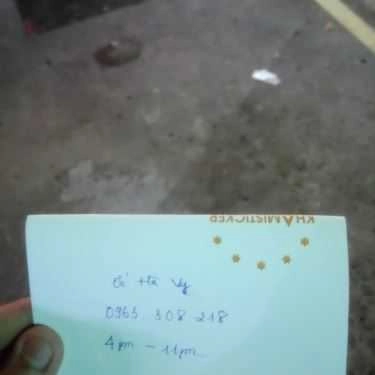 KHAMISTICKER
0965 308 218
4 pm - 11 pm